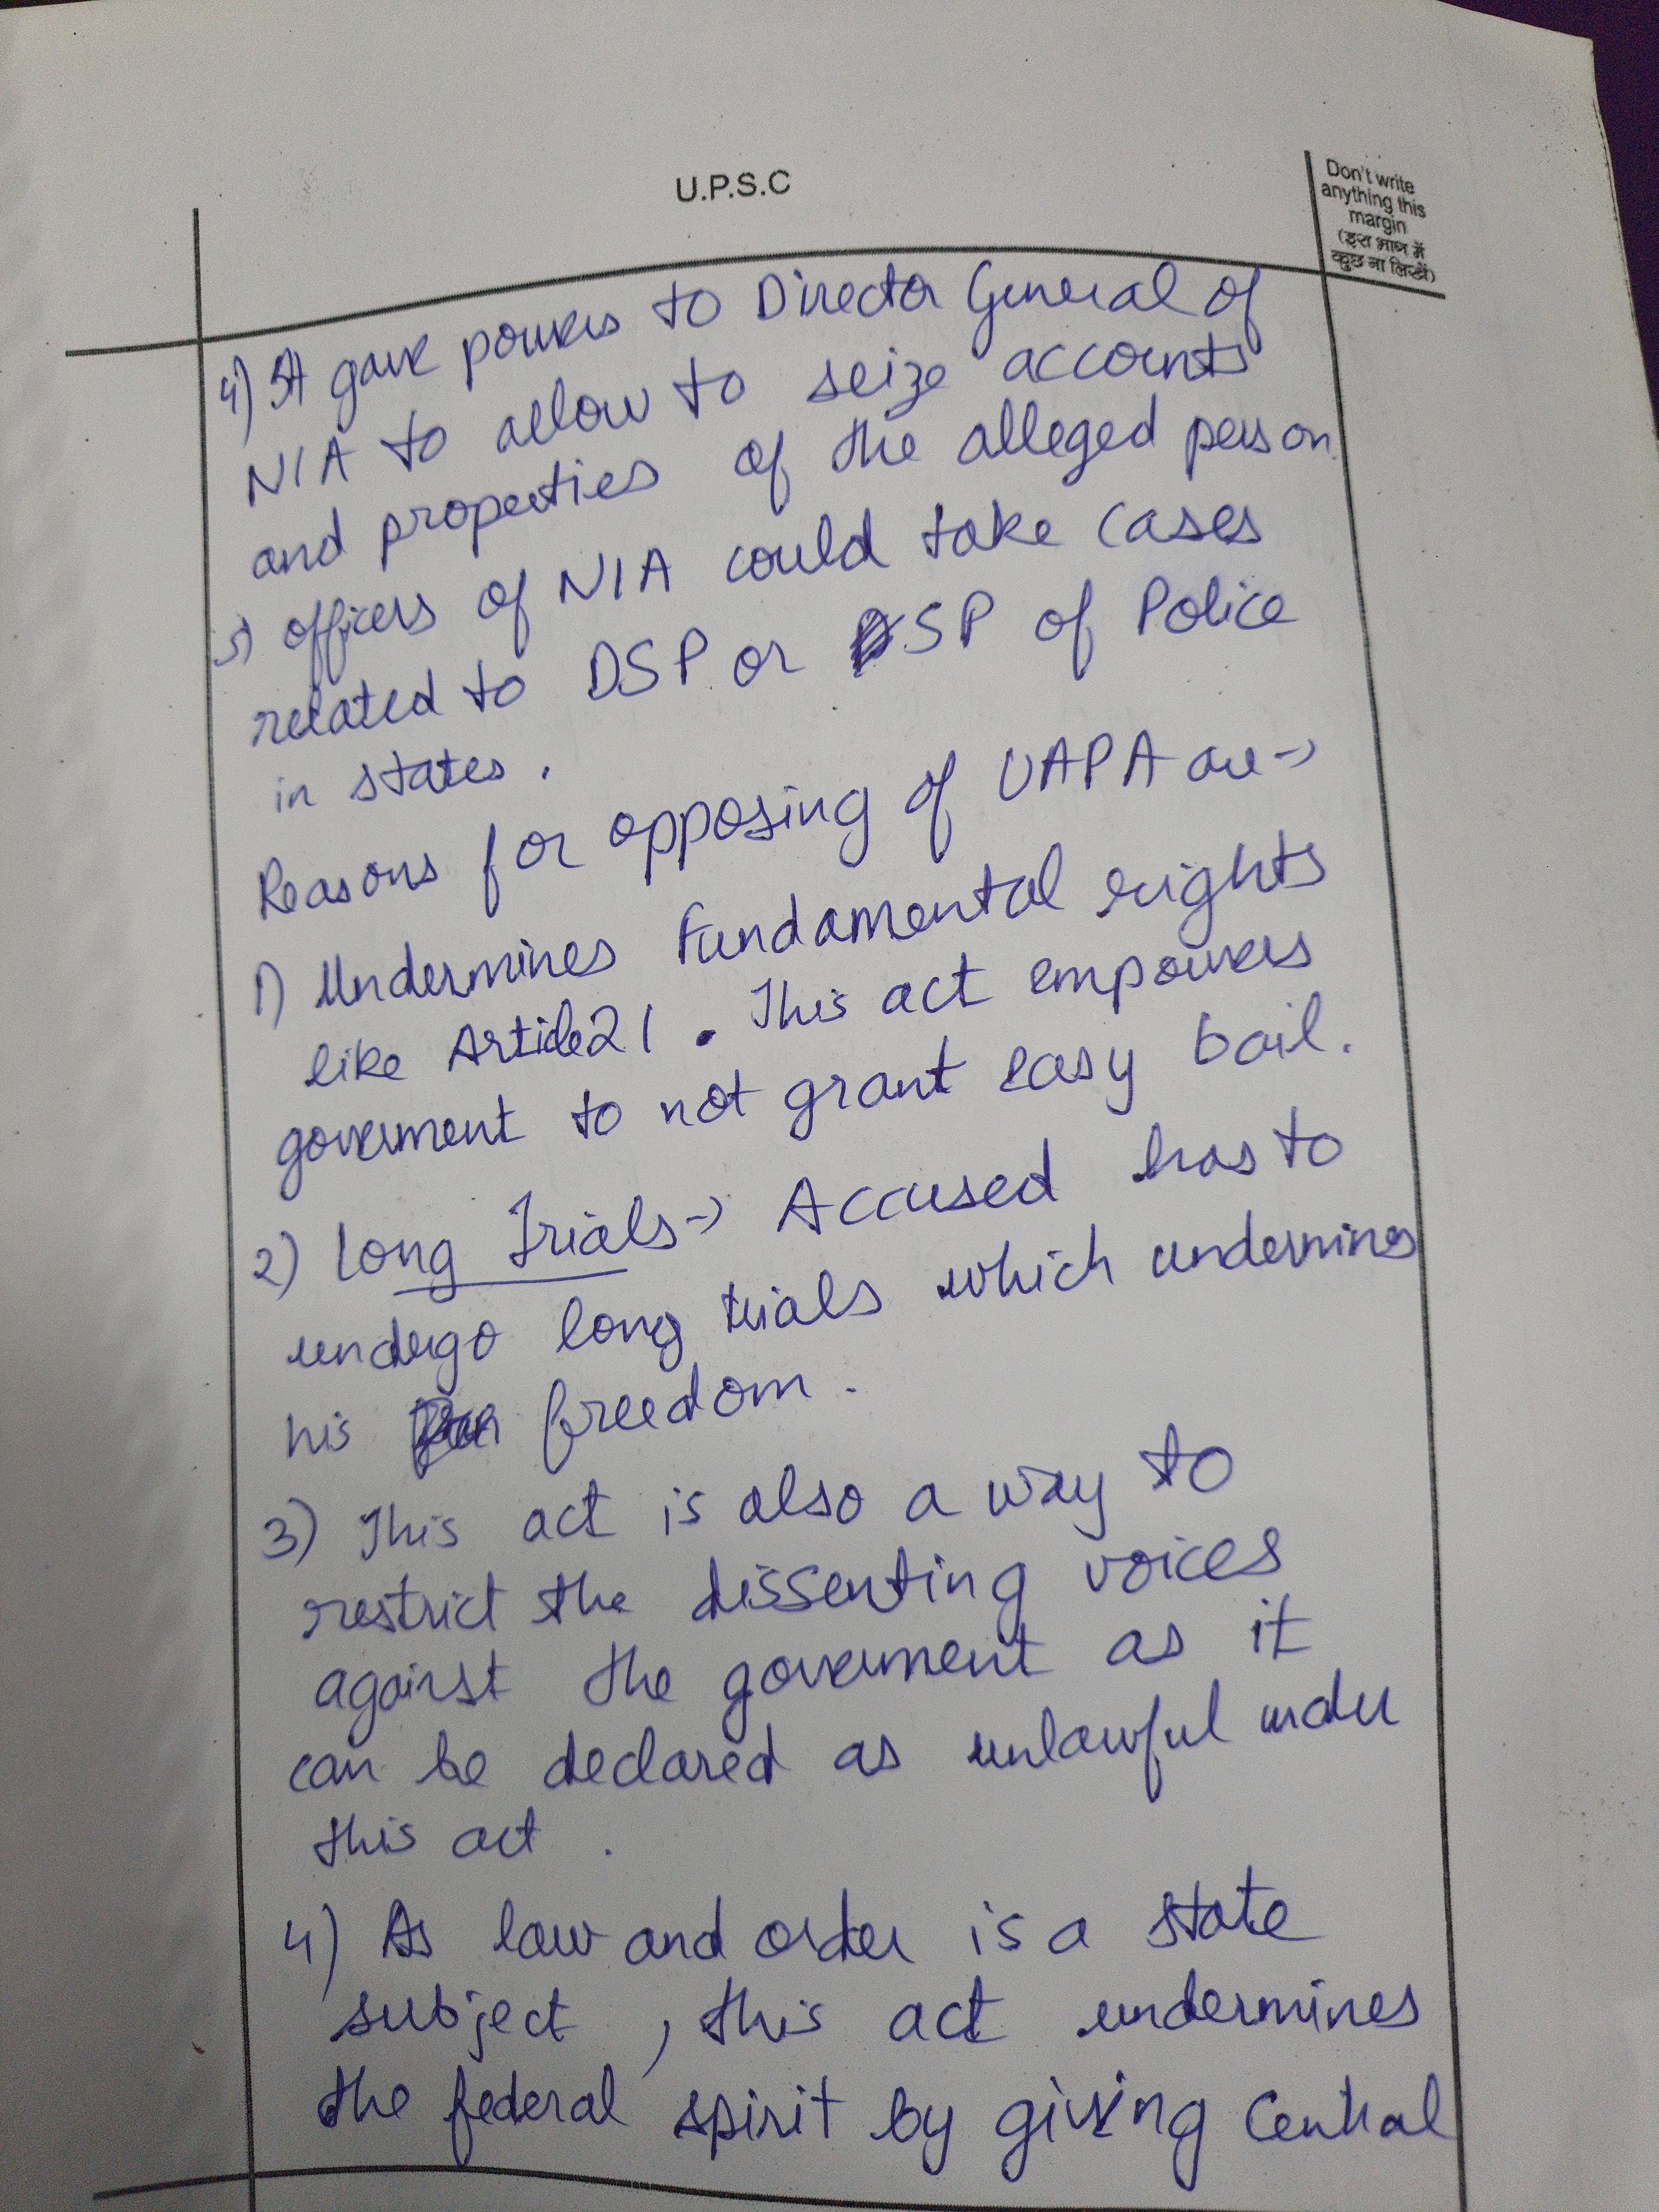 U.P.S.C
Don't write
anything this
margin
(इस भाग में
कुछ ना लिखें)
4) It gave powers to Director General of
NIA to allow to seize accounts
and properties of the alleged person.
5) officers of NIA could take cases
related to DSP or SP of Police
in states.
Reasons for opposing of UAPA are →
1) Undermines Fundamental rights
like Article 21. This act empowers
government to not grant easy bail.
2) Long Trials → Accused has to
undergo long trials which undermines
his freedom.
3) This act is also a way to
restrict the dissenting voices
against the government as it
can be declared as unlawful under
this act.
4) As law and order is a state
subject, this act undermines
the federal spirit by giving Central